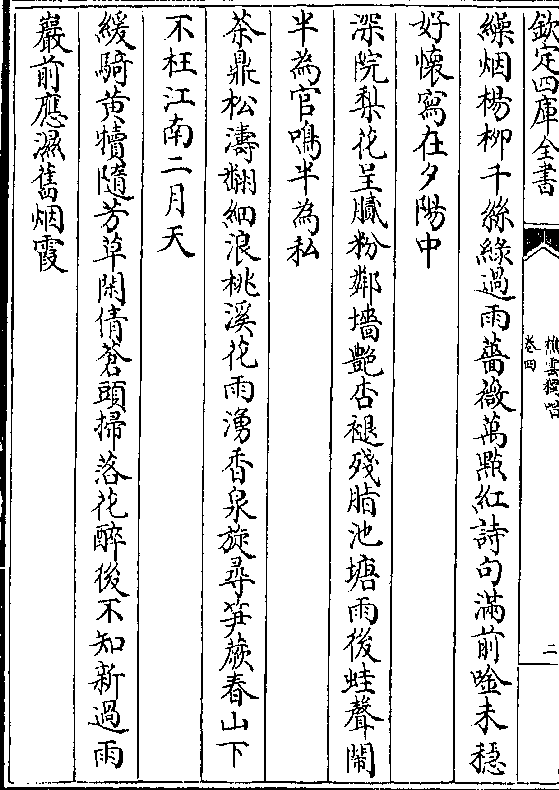 欽定四庫全書
樵雲獨唱
卷四
二
繰烟楊柳千絲緑過雨薔薇萬㸃紅詩句滿前唫未穏
好懐寫在夕陽中
深院梨花呈膩粉鄰墻艶杏褪殘脂池塘雨後蛙聲鬧
半為官鳴半為私
茶鼎松濤翻細浪桃溪花雨湧香泉旋尋笋蕨春山下
不枉江南二月天
緩騎黄犢隨芳草閑倩蒼頭掃落花醉後不知新過雨
巖前應濕舊烟霞